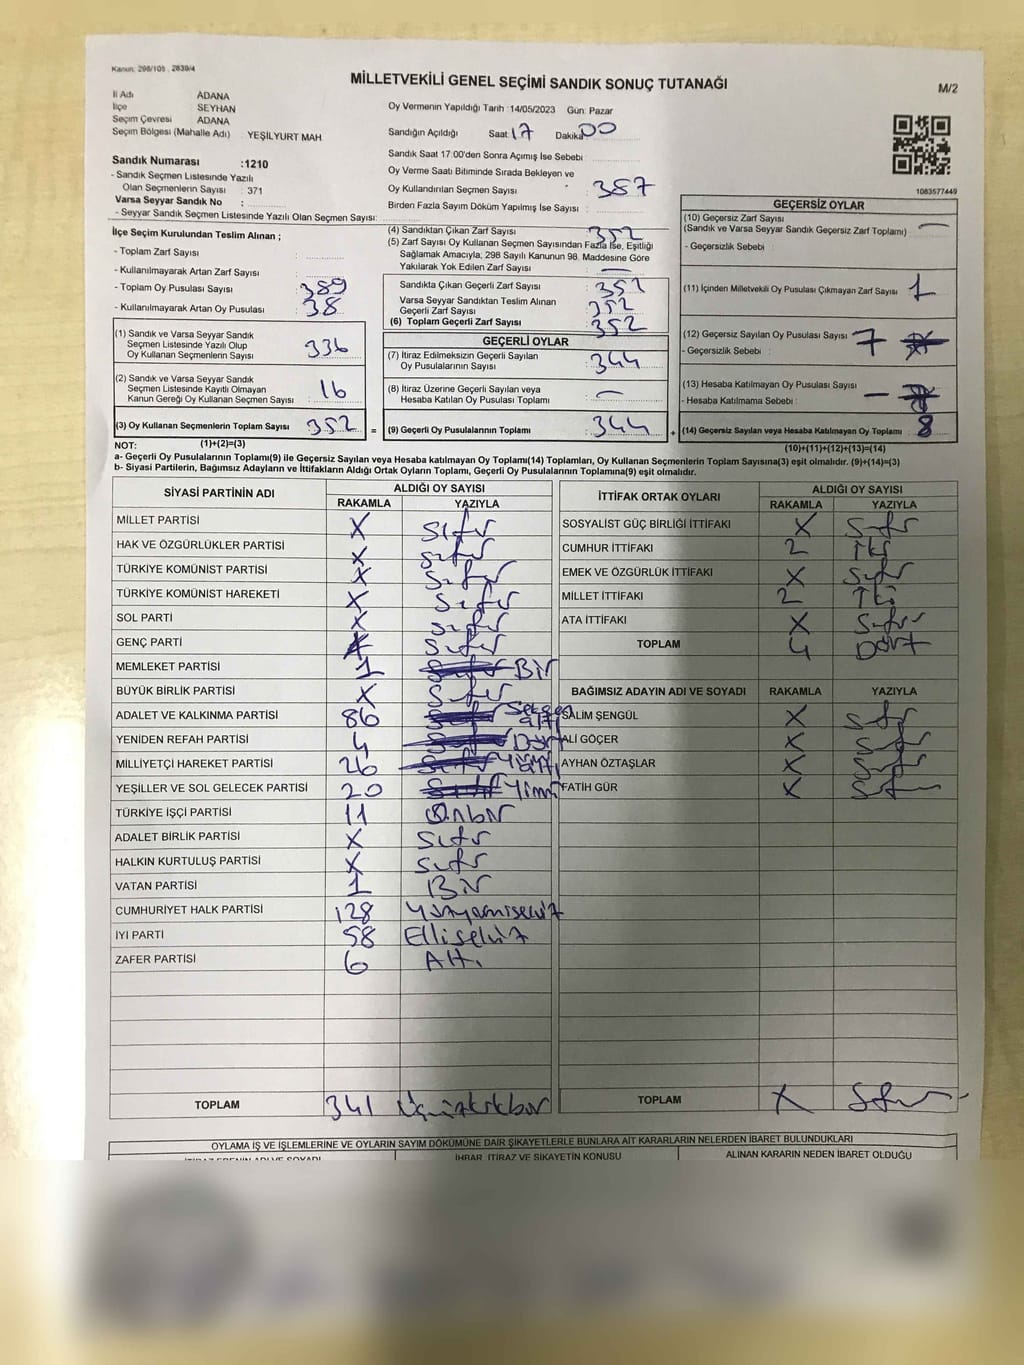 Kanun: 298/105 , 2839/4
MİLLETVEKİLİ GENEL SEÇİMİ SANDIK SONUÇ TUTANAĞI
M/2
İl Adı ADANA
İlçe SEYHAN
Seçim Çevresi ADANA
Seçim Bölgesi (Mahalle Adı) : YEŞİLYURT MAH
Oy Vermenin Yapıldığı Tarih :14/05/2023 Gün: Pazar
Sandığın Açıldığı Saat 17 Dakika 00
Sandık Saat 17:00'den Sonra Açımış İse Sebebi
Sandık Numarası :1210
- Sandık Seçmen Listesinde Yazılı
Olan Seçmenlerin Sayısı : 371
Varsa Seyyar Sandık No :
- Seyyar Sandık Seçmen Listesinde Yazılı Olan Seçmen Sayısı:
Oy Verme Saati Bitiminde Sırada Bekleyen ve
Oy Kullandırılan Seçmen Sayısı : 387
Birden Fazla Sayım Döküm Yapılmış İse Sayısı :
1083577449
İlçe Seçim Kurulundan Teslim Alınan ;
- Toplam Zarf Sayısı :
- Kullanılmayarak Artan Zarf Sayısı :
- Toplam Oy Pusulası Sayısı : 389
- Kullanılmayarak Artan Oy Pusulası : 38
(1) Sandık ve Varsa Seyyar Sandık
Seçmen Listesinde Yazılı Olup
Oy Kullanan Seçmenlerin Sayısı : 336
(2) Sandık ve Varsa Seyyar Sandık
Seçmen Listesinde Kayıtlı Olmayan
Kanun Gereği Oy Kullanan Seçmen Sayısı : 16
(3) Oy Kullanan Seçmenlerin Toplam Sayısı : 352 =
(1)+(2)=(3)
(4) Sandıktan Çıkan Zarf Sayısı : 352
(5) Zarf Sayısı Oy Kullanan Seçmen Sayısından Fazla İse, Eşitliği
Sağlamak Amacıyla; 298 Sayılı Kanunun 98. Maddesine Göre
Yakılarak Yok Edilen Zarf Sayısı : —
Sandıkta Çıkan Geçerli Zarf Sayısı : 352
Varsa Seyyar Sandıktan Teslim Alınan
Geçerli Zarf Sayısı : 352
(6) Toplam Geçerli Zarf Sayısı : 352
GEÇERLİ OYLAR
(7) İtiraz Edilmeksizin Geçerli Sayılan
Oy Pusulalarının Sayısı : 344
(8) İtiraz Üzerine Geçerli Sayılan veya
Hesaba Katılan Oy Pusulası Toplamı : —
(9) Geçerli Oy Pusulalarının Toplamı : 344 +
GEÇERSİZ OYLAR
(10) Geçersiz Zarf Sayısı
(Sandık ve Varsa Seyyar Sandık Geçersiz Zarf Toplamı) : —
- Geçersizlik Sebebi :
(11) İçinden Milletvekili Oy Pusulası Çıkmayan Zarf Sayısı : 1
(12) Geçersiz Sayılan Oy Pusulası Sayısı : 7
- Geçersizlik Sebebi :
(13) Hesaba Katılmayan Oy Pusulası Sayısı : —
- Hesaba Katılmama Sebebi :
(14) Geçersiz Sayılan veya Hesaba Katılmayan Oy Toplamı : 8
(10)+(11)+(12)+(13)=(14)
NOT:
a- Geçerli Oy Pusulalarının Toplamı(9) ile Geçersiz Sayılan veya Hesaba Katılmayan Oy Toplamı(14) Toplamları, Oy Kullanan Seçmenlerin Toplam Sayısına(3) eşit olmalıdır. (9)+(14)=(3)
b- Siyasi Partilerin, Bağımsız Adayların ve İttifakların Aldığı Ortak Oyların Toplamı, Geçerli Oy Pusulalarının Toplamına(9) eşit olmalıdır.
SİYASİ PARTİNİN ADI ALDIĞI OY SAYISI
RAKAMLA YAZIYLA
MİLLET PARTİSİ X Sıfır
HAK VE ÖZGÜRLÜKLER PARTİSİ X Sıfır
TÜRKİYE KOMÜNİST PARTİSİ X Sıfır
TÜRKİYE KOMÜNİST HAREKETİ X Sıfır
SOL PARTİ X Sıfır
GENÇ PARTİ X Sıfır
MEMLEKET PARTİSİ 1 Bir
BÜYÜK BİRLİK PARTİSİ X Sıfır
ADALET VE KALKINMA PARTİSİ 86 Seksen altı
YENİDEN REFAH PARTİSİ 4 Dört
MİLLİYETÇİ HAREKET PARTİSİ 26 Yirmi altı
YEŞİLLER VE SOL GELECEK PARTİSİ 20 Yirmi
TÜRKİYE İŞÇİ PARTİSİ 11 Onbir
ADALET BİRLİK PARTİSİ X Sıfır
HALKIN KURTULUŞ PARTİSİ X Sıfır
VATAN PARTİSİ 1 Bir
CUMHURİYET HALK PARTİSİ 128 Yüzyirmisekiz
İYİ PARTİ 58 Ellisekiz
ZAFER PARTİSİ 6 Altı
TOPLAM 341 Üçyüzkırkbir
İTTİFAK ORTAK OYLARI ALDIĞI OY SAYISI
RAKAMLA YAZIYLA
SOSYALİST GÜÇ BİRLİĞİ İTTİFAKI X Sıfır
CUMHUR İTTİFAKI 2 İki
EMEK VE ÖZGÜRLÜK İTTİFAKI X Sıfır
MİLLET İTTİFAKI 2 İki
ATA İTTİFAKI X Sıfır
TOPLAM 4 Dört
BAĞIMSIZ ADAYIN ADI VE SOYADI RAKAMLA YAZIYLA
SALİM ŞENGÜL X Sıfır
ALİ GÖÇER X Sıfır
AYHAN ÖZTAŞLAR X Sıfır
FATİH GÜR X Sıfır
TOPLAM X Sıfır
OYLAMA İŞ VE İŞLEMLERİNE VE OYLARIN SAYIM DÖKÜMÜNE DAİR ŞİKAYETLERLE BUNLARA AİT KARARLARIN NELERDEN İBARET BULUNDUKLARI
İTİRAZ EDENİN ADI VE SOYADI İHBAR, İTİRAZ VE ŞİKAYETİN KONUSU ALINAN KARARIN NEDEN İBARET OLDUĞU